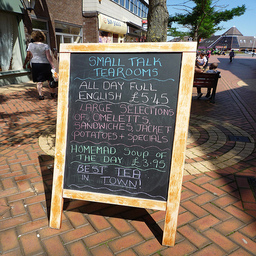 SMALL TALK
TEAROOMS
ALL DAY FULL
ENGLISH £5.45
LARGE SELECTIONS
OF OMELETTS,
SANDWICHES, JACKET
POTATOES + SPECIALS
HOMEMAD Soup of
THE DAY £3.95
BEST TEA
IN TOWN!